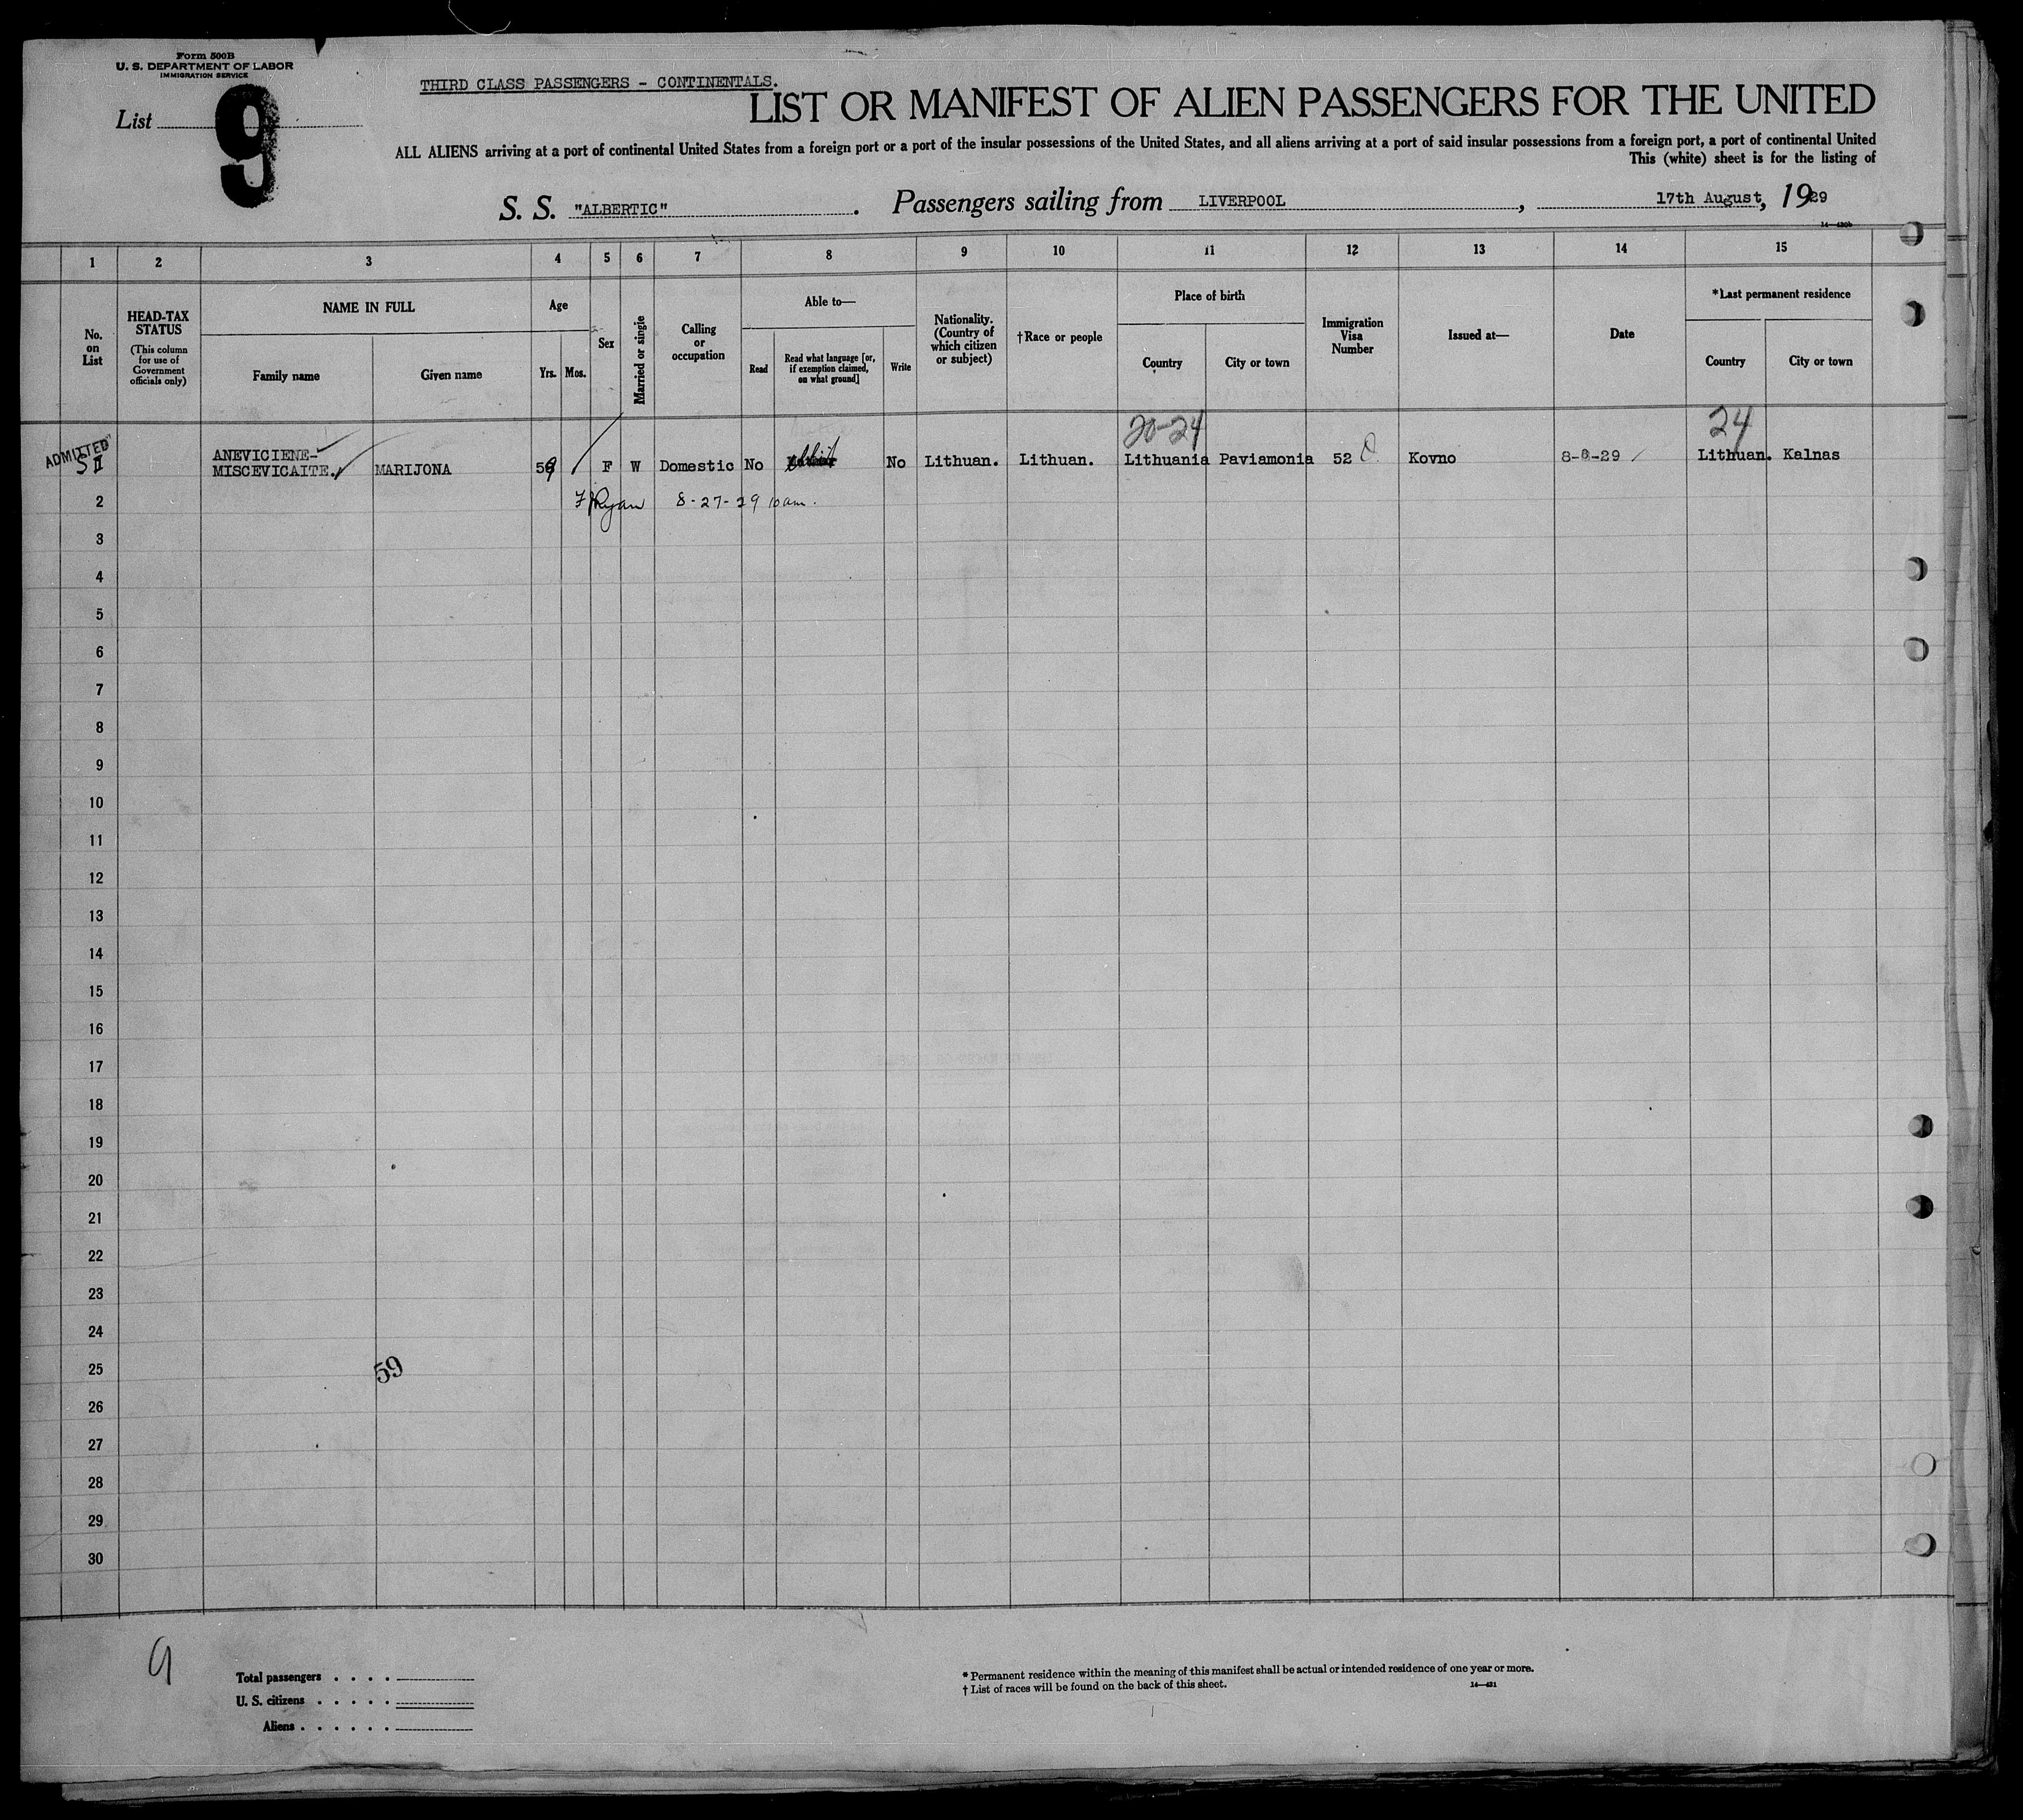 Form 500B
U. S. DEPARTMENT OF LABOR
IMMIGRATION SERVICE
List 9
THIRD CLASS PASSENGERS - CONTINENTALS.
LIST OR MANIFEST OF ALIEN PASSENGERS FOR THE UNITED
ALL ALIENS arriving at a port of continental United States from a foreign port or a port of the insular possessions of the United States, and all aliens arriving at a port of said insular possessions from a foreign port, a port of continental United
This (white) sheet is for the listing of
S. S. "ALBERTIC" . Passengers sailing from LIVERPOOL , 17th August, 1929
14—430b
1 2 3 4 5 6 7 8 9 10 11 12 13 14 15
No. on List
HEAD-TAX STATUS
(This column for use of Government officials only)
NAME IN FULL
Family name
Given name
Age
Yrs. Mos.
Sex
Married or single
Calling or occupation
Able to—
Read
Read what language [or, if exemption claimed, on what ground]
Write
Nationality. (Country of which citizen or subject)
†Race or people
Place of birth
Country
City or town
Immigration Visa Number
Issued at—
Date
*Last permanent residence
Country
City or town
20-24
24
ADMITTED
ANEVICIENE-
MISCEVICAITE. MARIJONA 59 F W Domestic No No Lithuan. Lithuan. Lithuania Paviamonia 52 Kovno 8-8-29 Lithuan. Kalnas
2 Ryan 8-27-29 10am.
3
4
5
6
7
8
9
10
11
12
13
14
15
16
17
18
19
20
21
22
23
24
25
59
26
27
28
29
30
9
Total passengers . . . .
U. S. citizens . . . . .
Aliens . . . . . .
* Permanent residence within the meaning of this manifest shall be actual or intended residence of one year or more.
† List of races will be found on the back of this sheet.
14—431